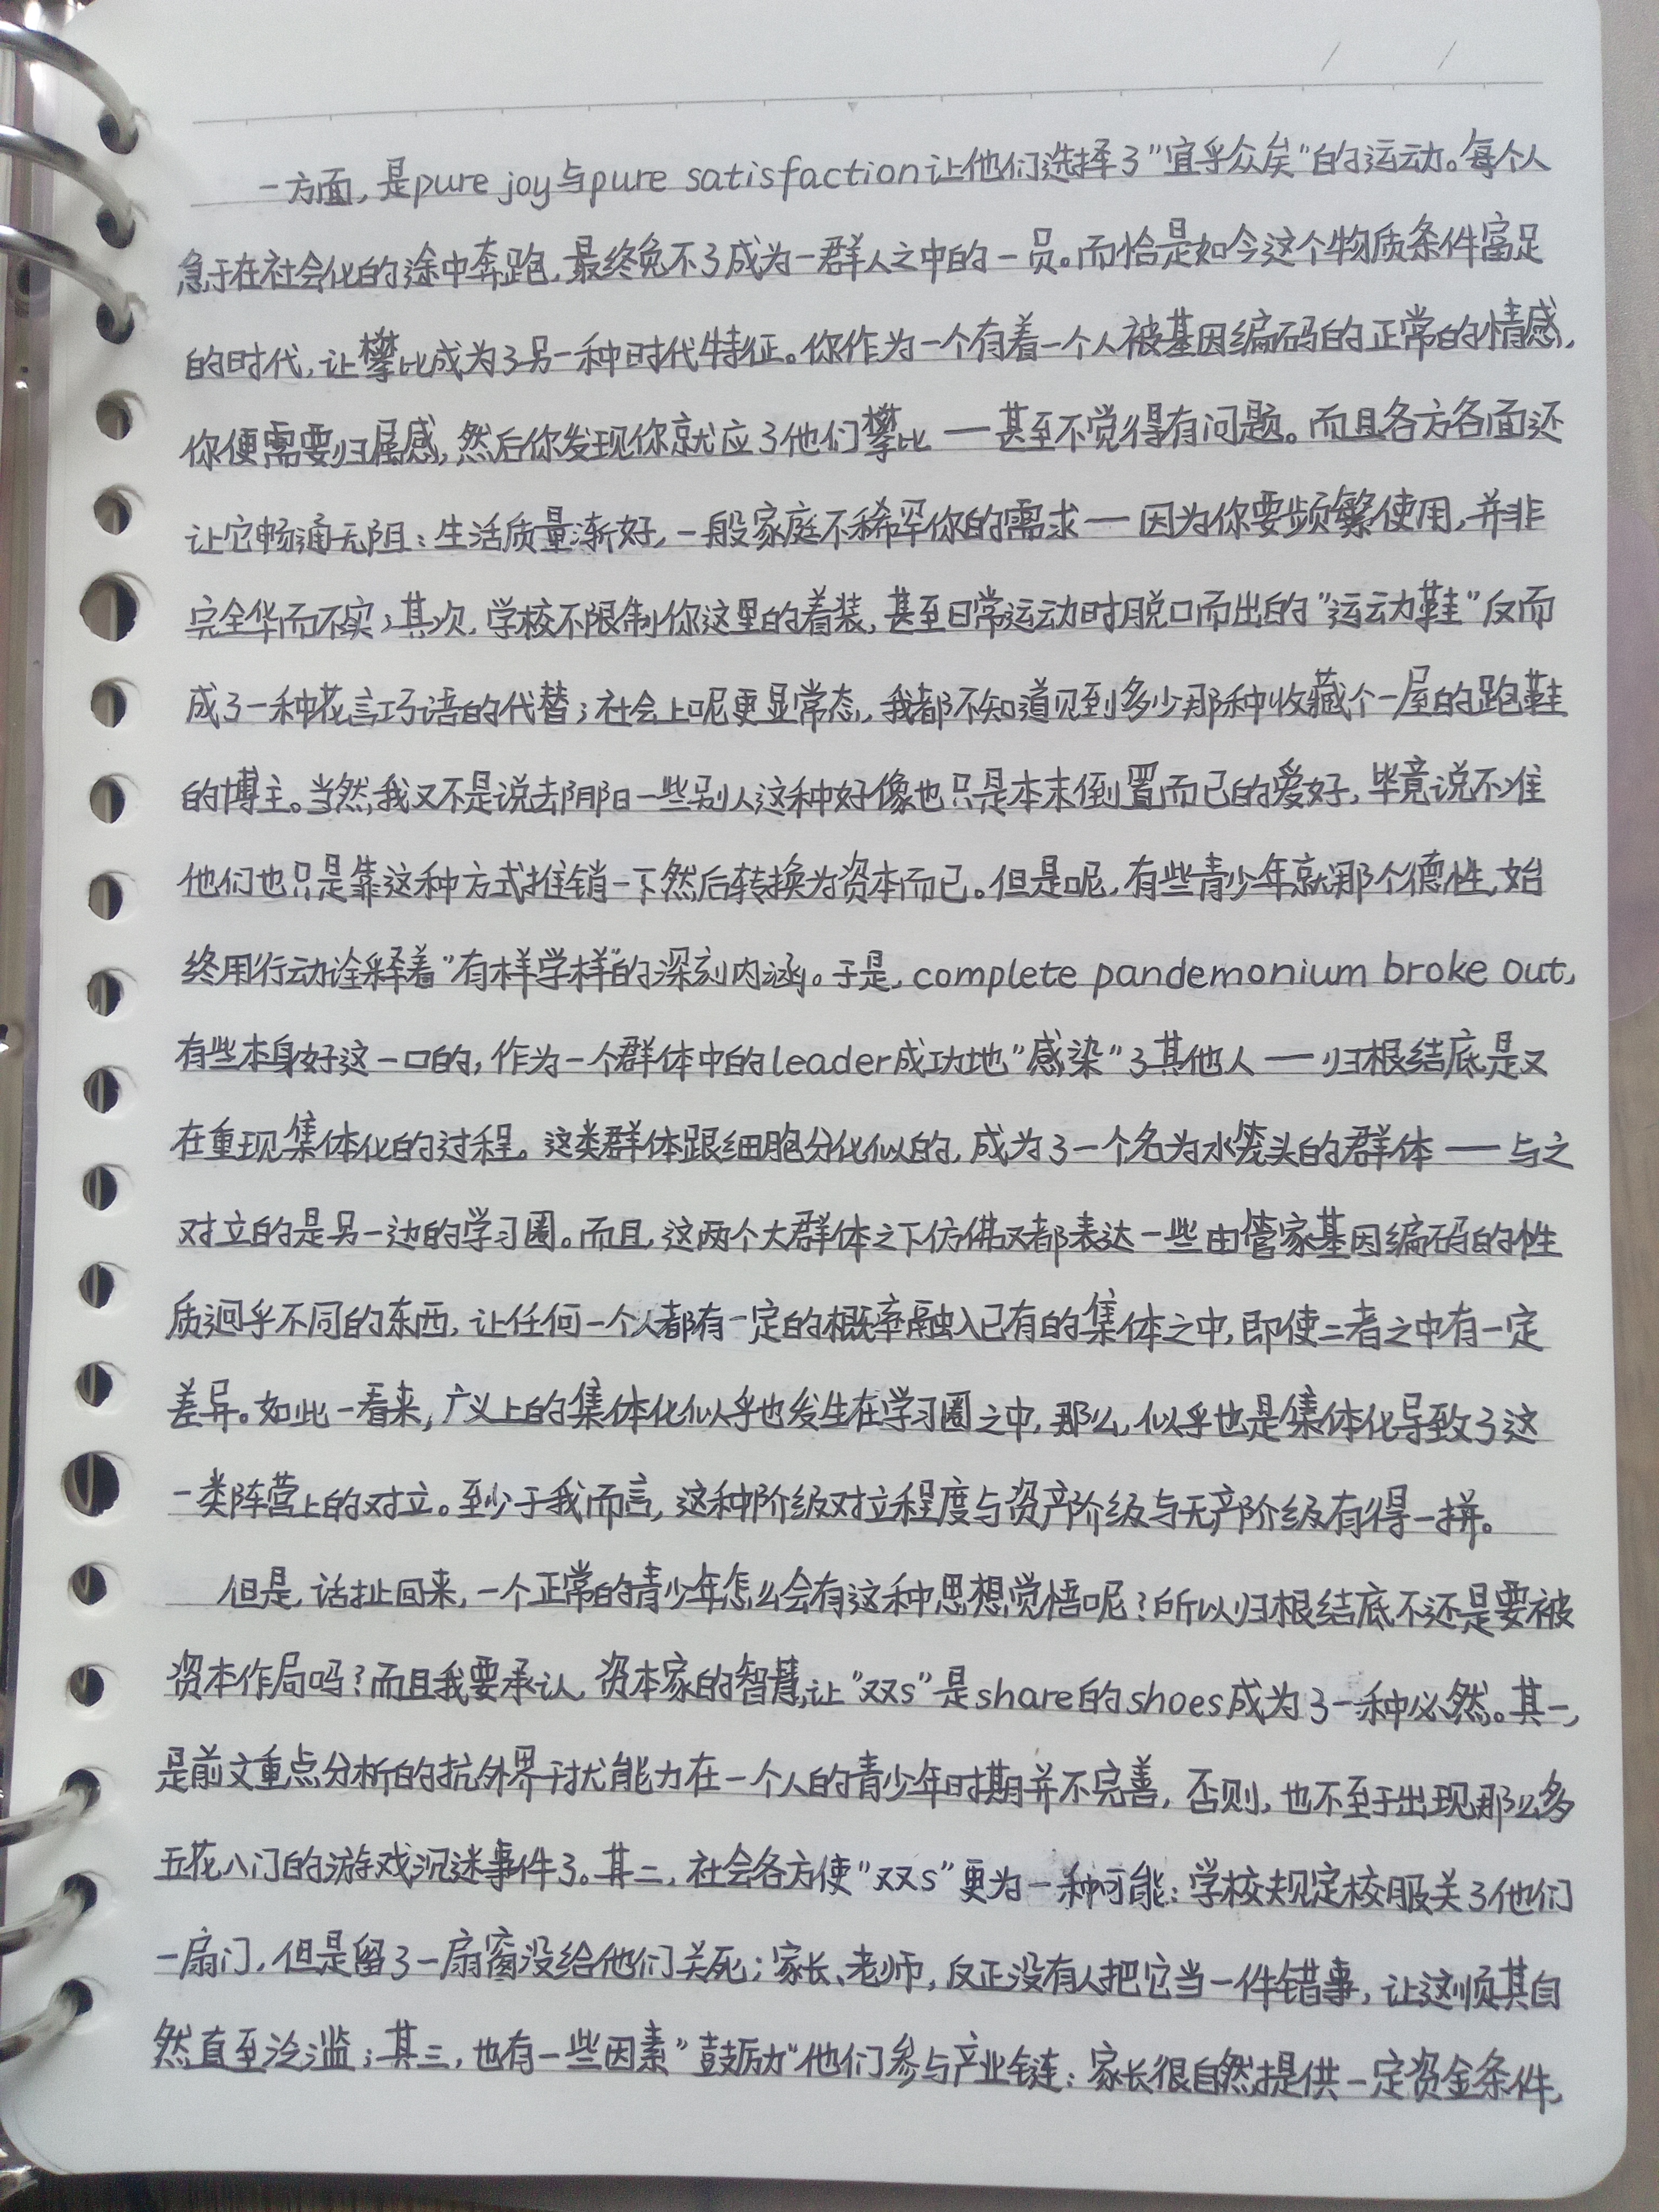 一方面，是pure joy与pure satisfaction让他们选择了"宜乎众矣"的运动。每个人
急于在社会化的途中奔跑，最终免不了成为一群人之中的一员。而恰是如今这个物质条件富足
的时代，让攀比成为了另一种时代特征。你作为一个有着一个人被基因编码的正常的情感，
你便需要归属感，然后你发现你就应了他们攀比——甚至不觉得有问题。而且各方各面还
让它畅通无阻：生活质量渐好，一般家庭不稀罕你的需求——因为你要频繁使用，并非
完全华而不实；其次，学校不限制你这里的着装，甚至日常运动时脱口而出的"运动鞋"反而
成了一种花言巧语的代替；社会上呢更显常态，我都不知道见到多少那种收藏个一屋的跑鞋
的博主。当然，我又不是说去阴阳一些别人这种好像也只是本末倒置而已的爱好，毕竟说不准
他们也只是靠这种方式推销一下然后转换为资本而已。但是呢，有些青少年就那个德性，始
终用行动诠释着"有样学样"的深刻内涵。于是，complete pandemonium broke out，
有些本身好这一口的，作为一个群体中的leader成功地"感染"了其他人——归根结底是又
在重现集体化的过程。这类群体跟细胞分化似的，成为了一个名为水笼头的群体——与之
对立的是另一边的学习圈。而且，这两个大群体之下仿佛又都表达一些由管家基因编码的性
质迥乎不同的东西，让任何一个人都有一定的概率融入已有的集体之中，即使二者之中有一定
差异。如此一看来，广义上的集体化似乎也发生在学习圈之中，那么，似乎也是集体化导致了这
一类阵营上的对立。至少于我而言，这种阶级对立程度与资产阶级与无产阶级有得一拼。
但是，话扯回来，一个正常的青少年怎么会有这种思想觉悟呢？所以归根结底不还是要被
资本作局吗？而且我要承认，资本家的智慧，让"双s"是share的shoes成为了一种必然。其一，
是前文重点分析的抗外界干扰能力在一个人的青少年时期并不完善，否则，也不至于出现那么多
五花八门的游戏沉迷事件了。其二，社会各方使"双s"更为一种可能：学校规定校服关了他们
一扇门，但是留了一扇窗没给他们关死；家长、老师，反正没有人把它当一件错事，让这顺其自
然直至泛滥；其三，也有一些因素"鼓励"他们参与产业链：家长很自然提供一定资金条件，